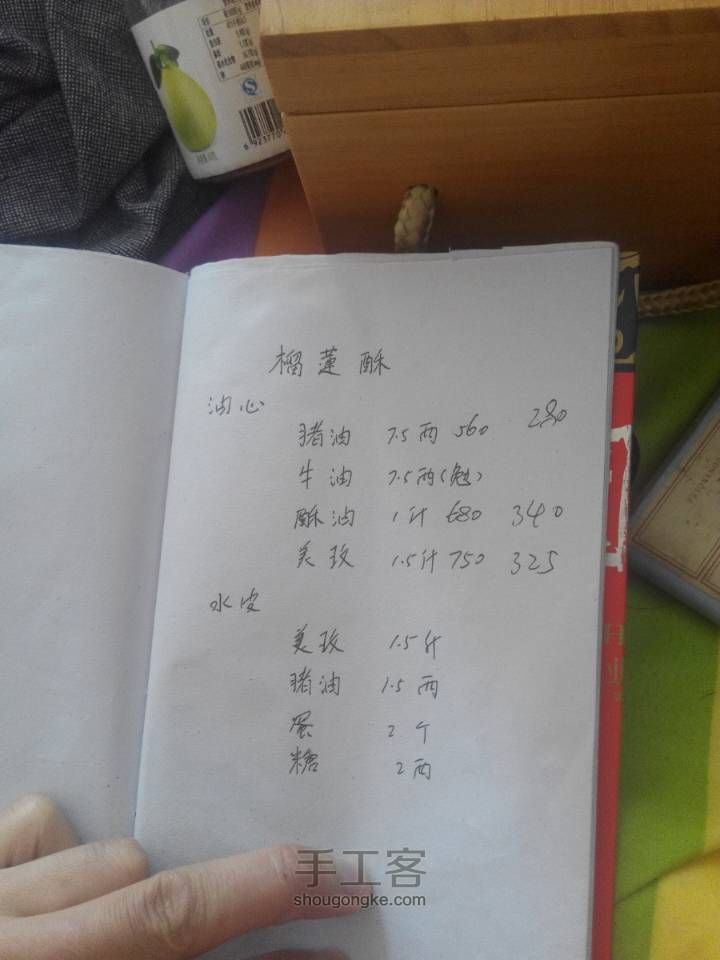 6 923770
榴蓮酥
油心
猪油 7.5两 560 280
牛油 7.5两(免)
酥油 1斤 680 340
美玫 1.5斤 750 325
水皮
美玫 1.5斤
猪油 1.5两
蛋 2个
糖 2两
手工客
shougongke.com